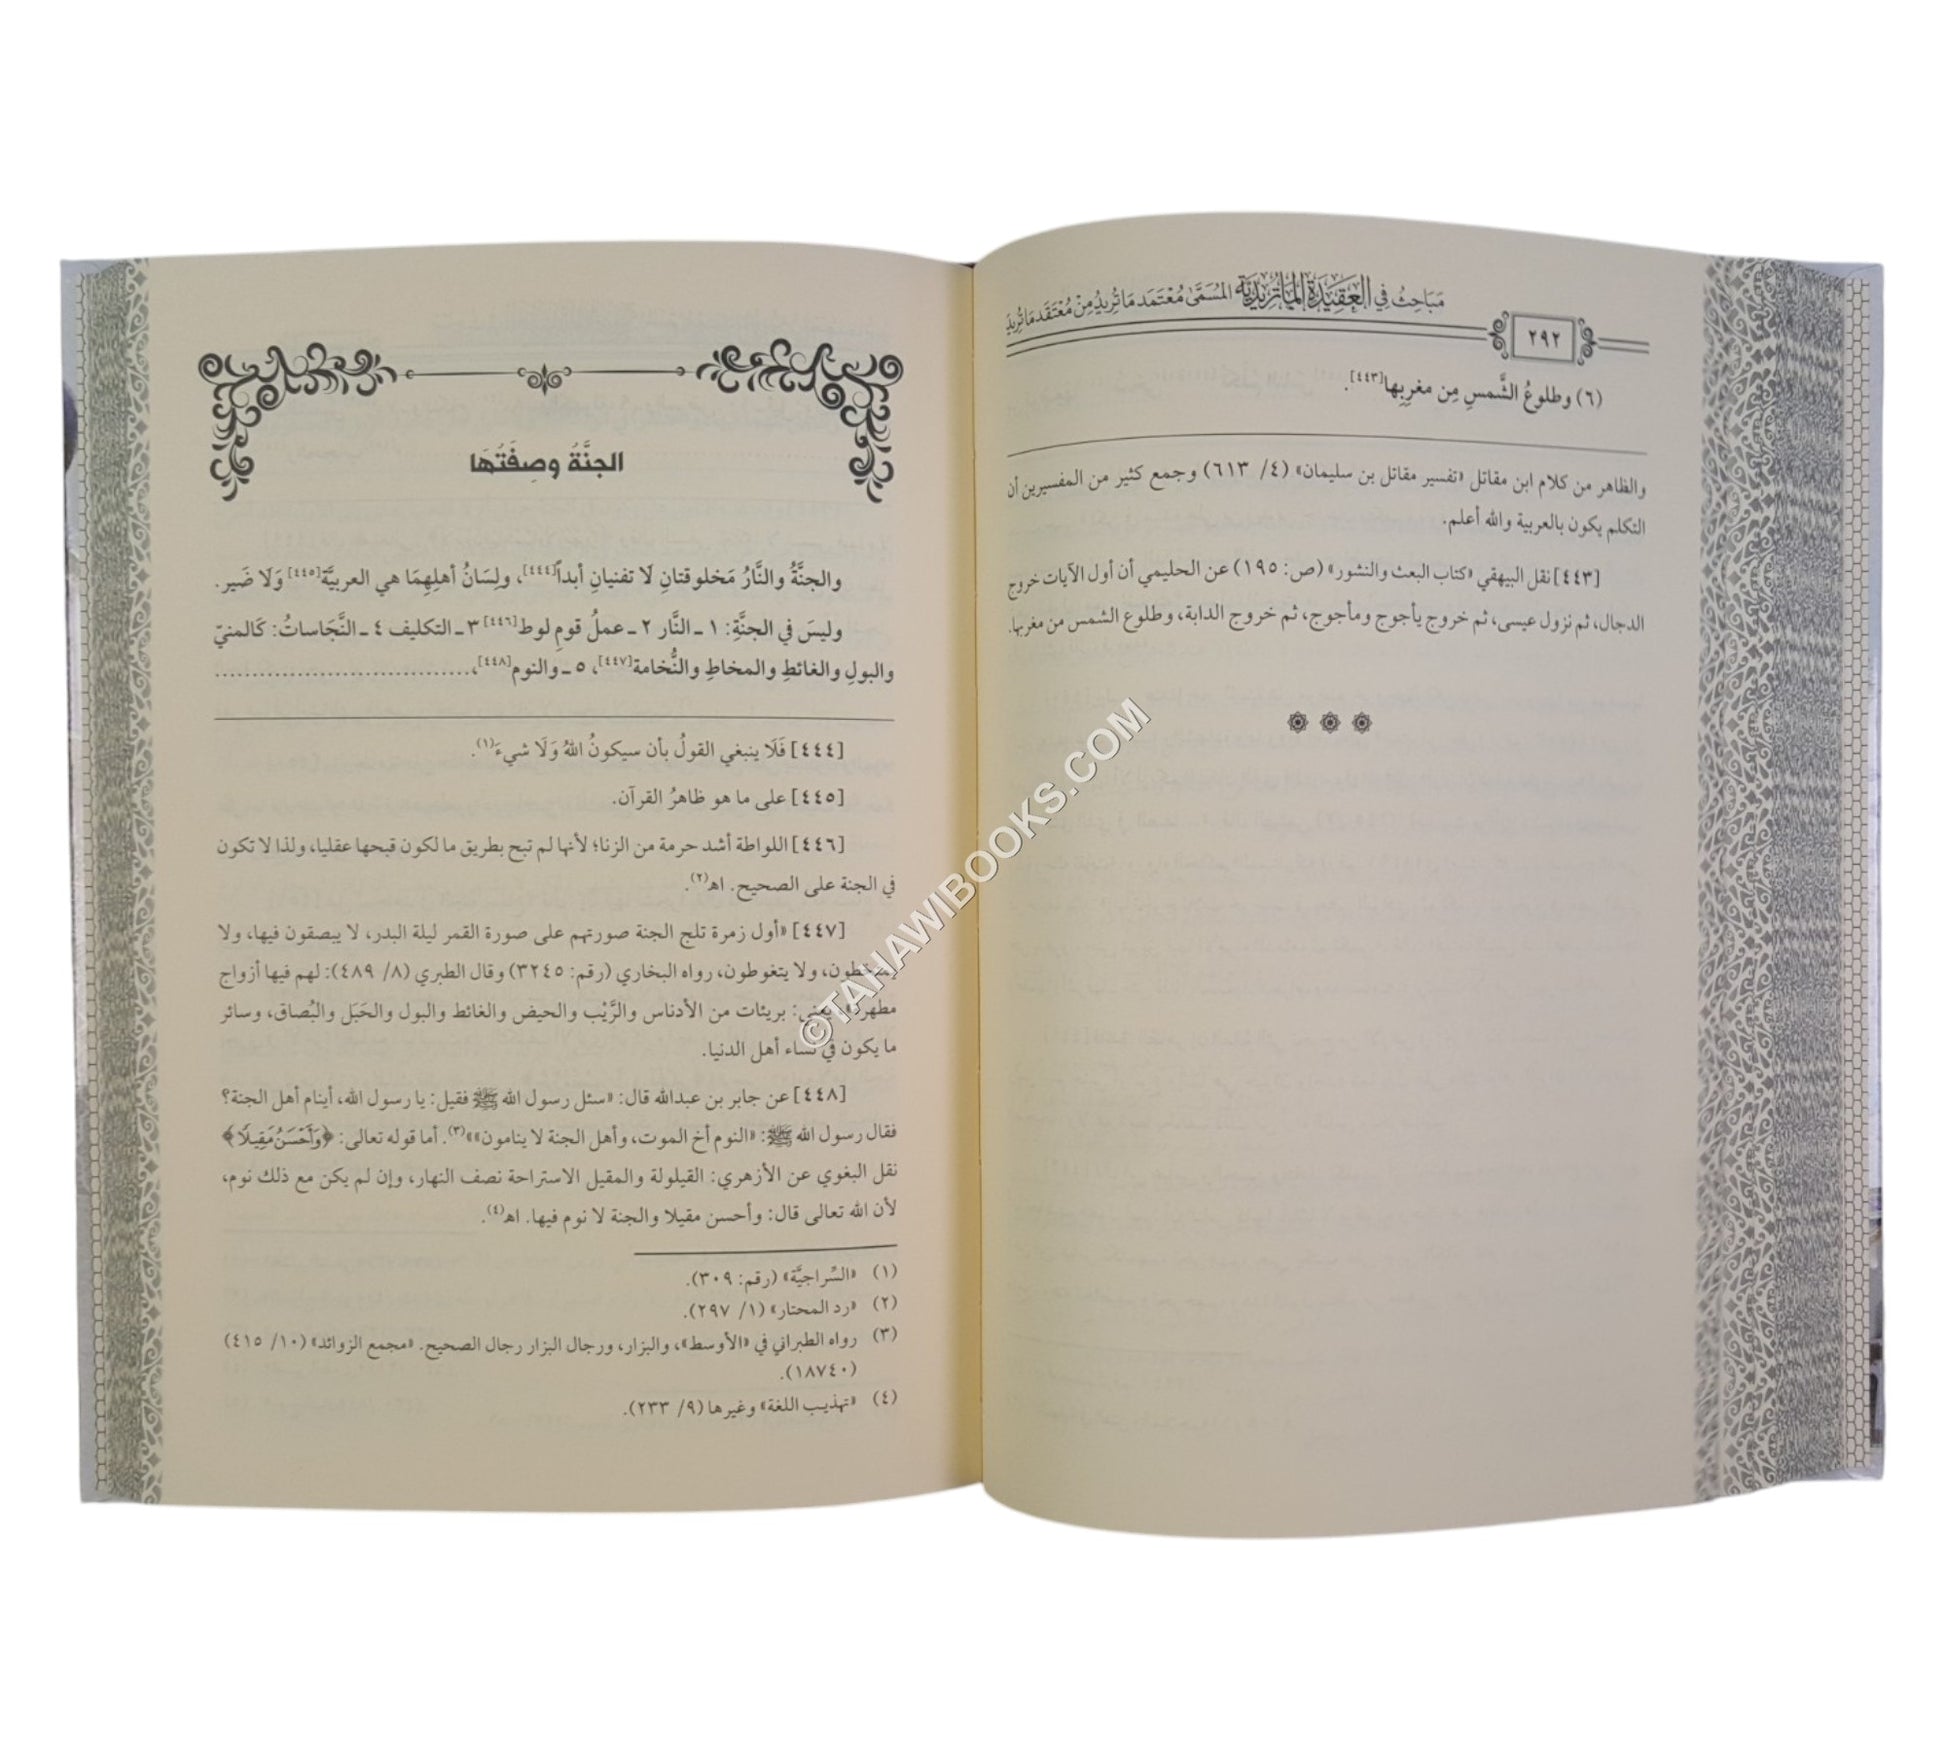 مَبَاحِثُ فِي العَقِيْدَةِ المَاتُرِيْدِيَّةِ المُسَمَّىٰ مُعْتَمَد مَا تُرِيدُ مِنْ مُعْتَقَدِ مَاتُرِيدَ
٢٩٢
(٦) وطلوعُ الشَّمسِ مِن مغرِبِها[٤٤٣].
والظاهر من كلام ابن مقاتل «تفسير مقاتل بن سليمان» (٤/ ٦١٣) وجمع كثير من المفسيرين أن
التكلم يكون بالعربية والله أعلم.
[٤٤٣] نقل البيهقي «كتاب البعث والنشور» (ص: ١٩٥) عن الحليمي أن أول الآيات خروج
الدجال، ثم نزول عيسى، ثم خروج يأجوج ومأجوج، ثم خروج الدابة، وطلوع الشمس من مغربها.
الجنَّةُ وصِفَتُهَا
والجنَّةُ والنَّارُ مَخلوقتانِ لَا تفنيانِ أبداً[٤٤٤]، ولِسَانُ أهلِهِمَا هي العربيَّة[٤٤٥] وَلَا ضَير.
وليسَ في الجنَّةِ: ١ ـ النَّار ٢ ـ عملُ قومِ لوط[٤٤٦] ٣ ـ التكليف ٤ ـ النَّجَاساتُ: كَالمنيّ
والبولِ والغائطِ والمخاطِ والنُّخامة[٤٤٧]، ٥ ـ والنوم[٤٤٨]،................................
[٤٤٤] فَلَا ينبغي القولُ بأن سيكونُ اللهُ وَلَا شيءَ(١).
[٤٤٥] على ما هو ظاهرُ القرآن.
[٤٤٦] اللواطة أشد حرمة من الزنا؛ لأنها لم تبح بطريق ما لكون قبحها عقليا، ولذا لا تكون
في الجنة على الصحيح. اهـ(٢).
[٤٤٧] «أول زمرة تلج الجنة صورتهم على صورة القمر ليلة البدر، لا يبصقون فيها، ولا
يمتخطون، ولا يتغوطون، رواه البخاري (رقم: ٣٢٤٥) وقال الطبري (٨/ ٤٨٩): لهم فيها أزواج
مطهرة» يعني: بريئات من الأدناس والرَّيْب والحيض والغائط والبول والحَبَل والبُصاق، وسائر
ما يكون في نساء أهل الدنيا.
[٤٤٨] عن جابر بن عبدالله قال: «سئل رسول الله ﷺ فقيل: يا رسول الله، أينام أهل الجنة؟
فقال رسول الله ﷺ: «النوم أخ الموت، وأهل الجنة لا ينامون»»(٣). أما قوله تعالى: ﴿وَأَحْسَنُ مَقِيلًا﴾
نقل البغوي عن الأزهري: القيلولة والمقيل الاستراحة نصف النهار، وإن لم يكن مع ذلك نوم،
لأن الله تعالى قال: وأحسن مقيلا والجنة لا نوم فيها. اهـ(٤).
(١) «السِّراجيَّة» (رقم: ٣٠٩).
(٢) «رد المحتار» (١/ ٢٩٧).
(٣) رواه الطبراني في «الأوسط»، والبزار، ورجال البزار رجال الصحيح. «مجمع الزوائد» (١٠/ ٤١٥)
(١٨٧٤٠).
(٤) «تهذيب اللغة» وغيرها (٩/ ٢٣٣).
©TAHAWIBOOKS.COM